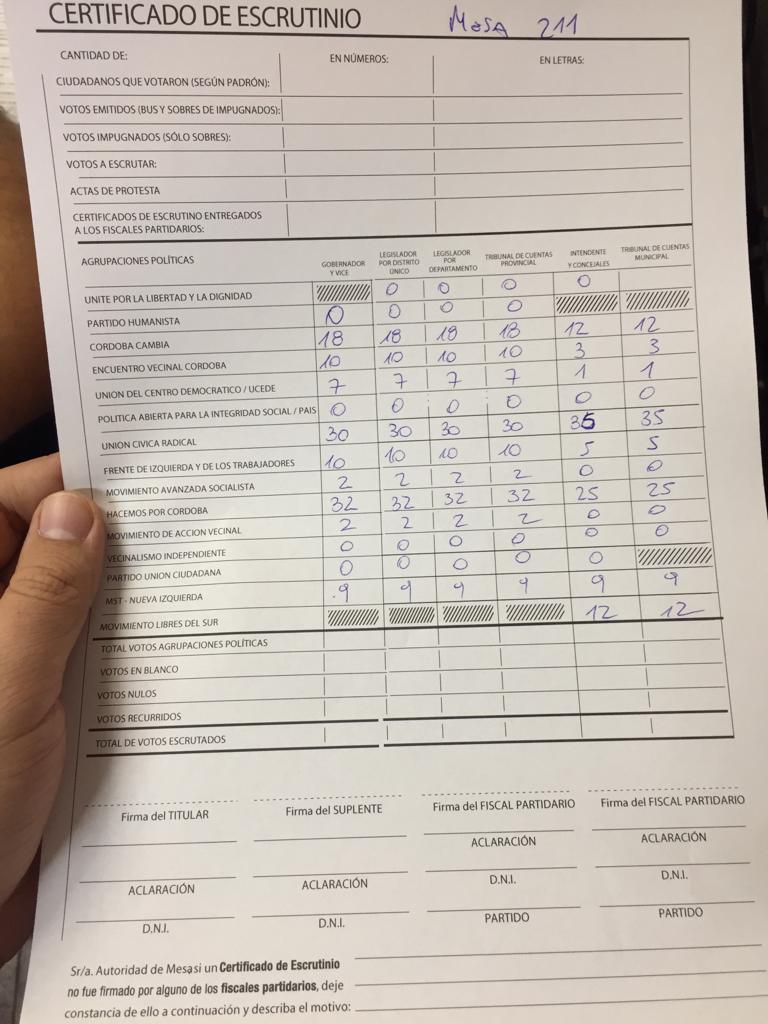 CERTIFICADO DE ESCRUTINIO Mesa 211
CANTIDAD DE: EN NÚMEROS: EN LETRAS:
CIUDADANOS QUE VOTARON (SEGÚN PADRÓN):
VOTOS EMITIDOS (BUS Y SOBRES DE IMPUGNADOS):
VOTOS IMPUGNADOS (SÓLO SOBRES):
VOTOS A ESCRUTAR:
ACTAS DE PROTESTA
CERTIFICADOS DE ESCRUTINO ENTREGADOS
A LOS FISCALES PARTIDARIOS:
AGRUPACIONES POLÍTICAS GOBERNADOR Y VICE LEGISLADOR POR DISTRITO ÚNICO LEGISLADOR POR DEPARTAMENTO TRIBUNAL DE CUENTAS PROVINCIAL INTENDENTE Y CONCEJALES TRIBUNAL DE CUENTAS MUNICIPAL
UNITE POR LA LIBERTAD Y LA DIGNIDAD 0 0 0 0
PARTIDO HUMANISTA 0 0 0 0
CORDOBA CAMBIA 18 18 18 18 12 12
ENCUENTRO VECINAL CORDOBA 10 10 10 10 3 3
UNION DEL CENTRO DEMOCRATICO / UCEDE 7 7 7 7 1 1
POLITICA ABIERTA PARA LA INTEGRIDAD SOCIAL / PAIS 0 0 0 0 0 0
UNION CIVICA RADICAL 30 30 30 30 35 35
FRENTE DE IZQUIERDA Y DE LOS TRABAJADORES 10 10 10 10 5 5
MOVIMIENTO AVANZADA SOCIALISTA 2 2 2 2 0 0
HACEMOS POR CORDOBA 32 32 32 32 25 25
MOVIMIENTO DE ACCION VECINAL 2 2 2 2 0 0
VECINALISMO INDEPENDIENTE 0 0 0 0 0 0
PARTIDO UNION CIUDADANA 0 0 0 0 0
MST - NUEVA IZQUIERDA 9 9 9 9 9 9
MOVIMIENTO LIBRES DEL SUR 12 12
TOTAL VOTOS AGRUPACIONES POLÍTICAS
VOTOS EN BLANCO
VOTOS NULOS
VOTOS RECURRIDOS
TOTAL DE VOTOS ESCRUTADOS
Firma del TITULAR Firma del SUPLENTE Firma del FISCAL PARTIDARIO Firma del FISCAL PARTIDARIO
ACLARACIÓN ACLARACIÓN ACLARACIÓN ACLARACIÓN
D.N.I. D.N.I. D.N.I. D.N.I.
PARTIDO PARTIDO
Sr/a. Autoridad de Mesa si un Certificado de Escrutinio
no fue firmado por alguno de los fiscales partidarios, deje
constancia de ello a continuación y describa el motivo: